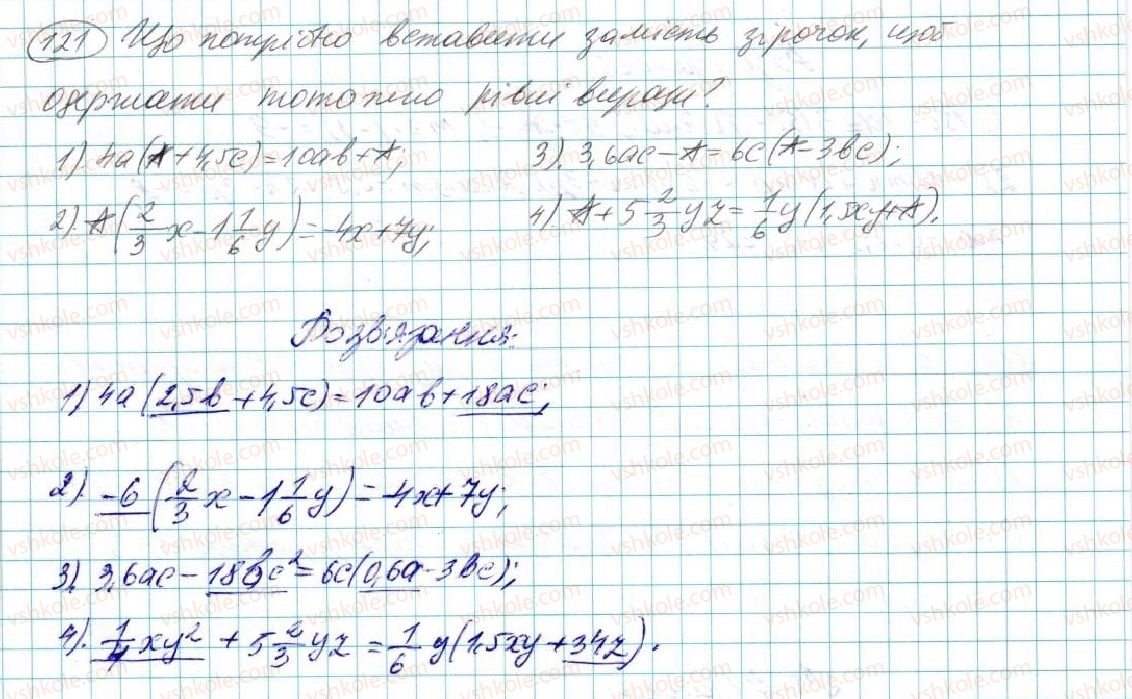 121 Що потрібно вставити замість зірочок, щоб
одержати тотожно рівні вирази?
1) 4a(* + 4,5c) = 10ab + *;
3) 3,6ac - * = 6c(* - 3bc);
2) *(2/3 x - 1 1/6 y) = -4x + 7y;
4) * + 5 2/3 yz = 1/6 y(1,5xy + *).
Розв'язання:
1) 4a(2,5b + 4,5c) = 10ab + 18ac;
2) -6(2/3 x - 1 1/6 y) = -4x + 7y;
3) 3,6ac - 18bc² = 6c(0,6a - 3bc);
4) 1/4 xy² + 5 2/3 yz = 1/6 y(1,5xy + 34z).